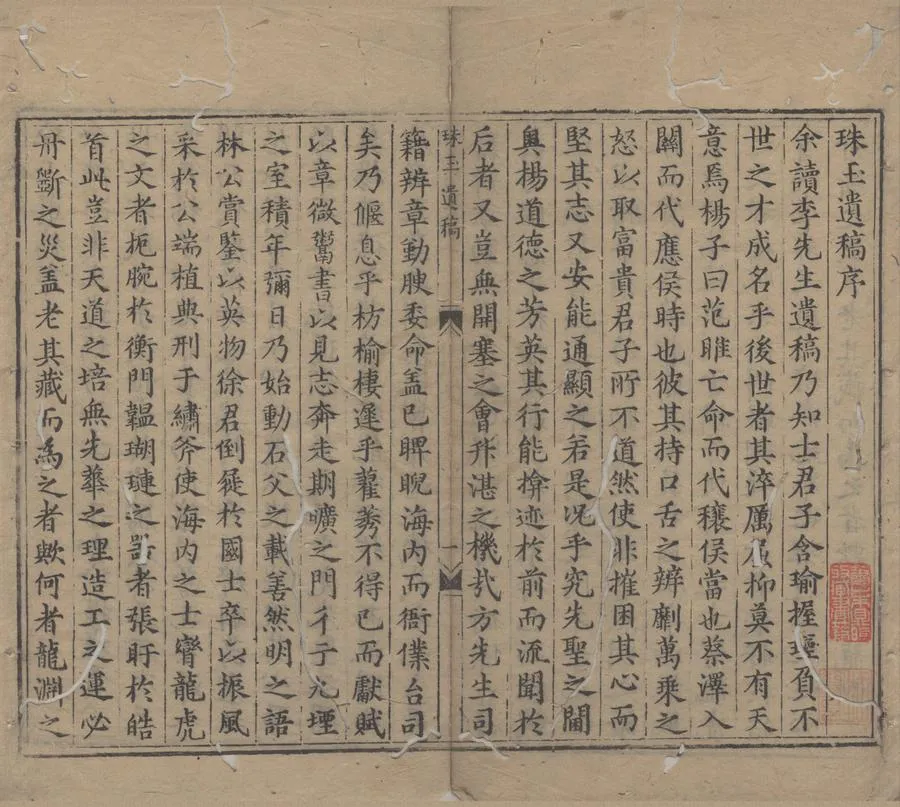 珠玉遺稿序
余讀李先生遺稿乃知士君子含瑜握璧負不
世之才成名乎後世者其淬厲屈抑莫不有天
意焉楊子曰范睢亡命而代穰侯當也蔡澤入
關而代應侯時也彼其持口舌之辨劘萬乘之
怒以取富貴君子所不道然使非摧困其心而
堅其志又安能通顯之若是况乎究先聖之閫
奧楊道德之芳英其行能揜迹於前而流聞於
后者又豈無開塞之會升湛之機㢤方先生司
珠玉遺稿
一
籍辨章勤腴委命盖已睥睨海内而衙僕台司
矣乃偃息乎枋榆棲遲乎藋莠不得已而獻賦
以章微鬻書以見志奔走期曠之門彳亍尢堙
之室積年彌日乃始動石父之載善然明之語
林公賞鑒以英物徐君倒屣於國士卒以振風
采於公端植典刑于繡斧使海内之士臠龍虎
之文者扼腕於衡門韞瑚璉之器者張盱於皓
首此豈非天道之培無先蕐之理造工之運必
丹斵之災盖老其藏而為之者歟何者龍淵之